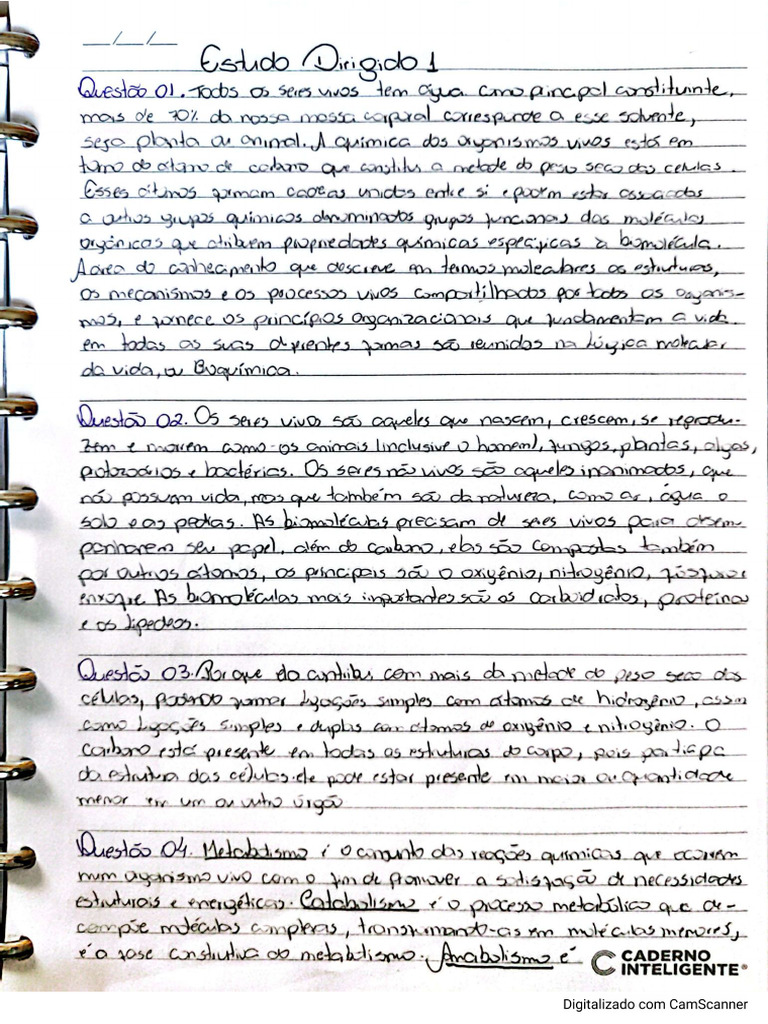 __/__/__
Estudo Dirigido 1
Questão 01. Todos os seres vivos tem água como principal constituinte,
mais de 70% da nossa massa corporal corresponde a esse solvente,
seja planta ou animal. A química dos organismos vivos está em
torno do átomo de carbono que constitui a metade do peso seco das células.
Esses átomos formam cadeias unidos entre si e podem estar associados
a outros grupos químicos denominados grupos funcionais das moléculas
orgânicas que atribuem propriedades químicas específicas à biomolécula.
A área do conhecimento que descreve em termos moleculares as estruturas,
os mecanismos e os processos vivos compartilhados por todos os organis-
mos, e fornece os princípios organizacionais que fundamentam a vida
em todas as suas diferentes formas são reunidos na Lógica molecular
da vida, ou Bioquímica.
Questão 02. Os seres vivos são aqueles que nascem, crescem, se reprodu-
zem e morrem como os animais (inclusive o homem), fungos, plantas, algas,
protozoários e bactérias. Os seres não vivos são aqueles inanimados, que
não possuem vida, mas que também são da natureza, como ar, água o
solo e as pedras. As biomoléculas precisam de seres vivos para desem
penharem seu papel, além do carbono, elas são compostas também
por outros átomos, os principais são o oxigênio, nitrogênio, fósforo
enxofre. As biomoléculas mais importantes são os carboidratos, proteína
e os lipedeos.
Questão 03. Por que ela contribui com mais da metade do peso seco das
células, podendo formar ligações simples com átomos de hidrogênio, assim
como ligações simples e duplas com átomos de oxigênio e nitrogênio. O
carbono está presente em todas as estruturas do corpo, pois participa
da estrutura das células. ele pode estar presente em maior ou quantidade
menor em um ou outro órgão
Questão 04. Metabolismo é o conjunto das reações químicas que ocorrem
num organismo vivo com o fim de promover a satisfação de necessidades
estruturais e energéticas. Catabolismo é o processo metabólico que de-
compõe moléculas complexas, transformando-as em moléculas menores,
é a fase construtiva do metabolismo. Anabolismo é
CADERNO
INTELIGENTE®
Digitalizado com CamScanner